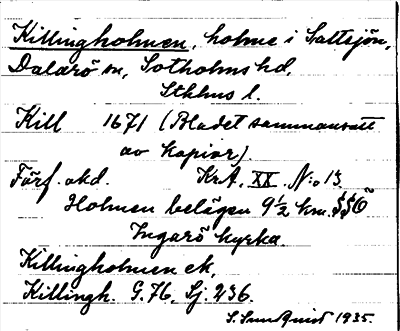 Killingholmen, holme i Saltsjön,
Dalarö sn, Sotholms hd,
Sthlms l.
Kill 1671 (Bladet sammansatt
av kopior).
Förf. okd. KrA. XX. N:o 13.
Holmen belägen 9½ km. SSÖ
Ingarö kyrka.
Killingholmen ek,
Killingh. G.76, Sj. 236.
S. Sundquist 1935.